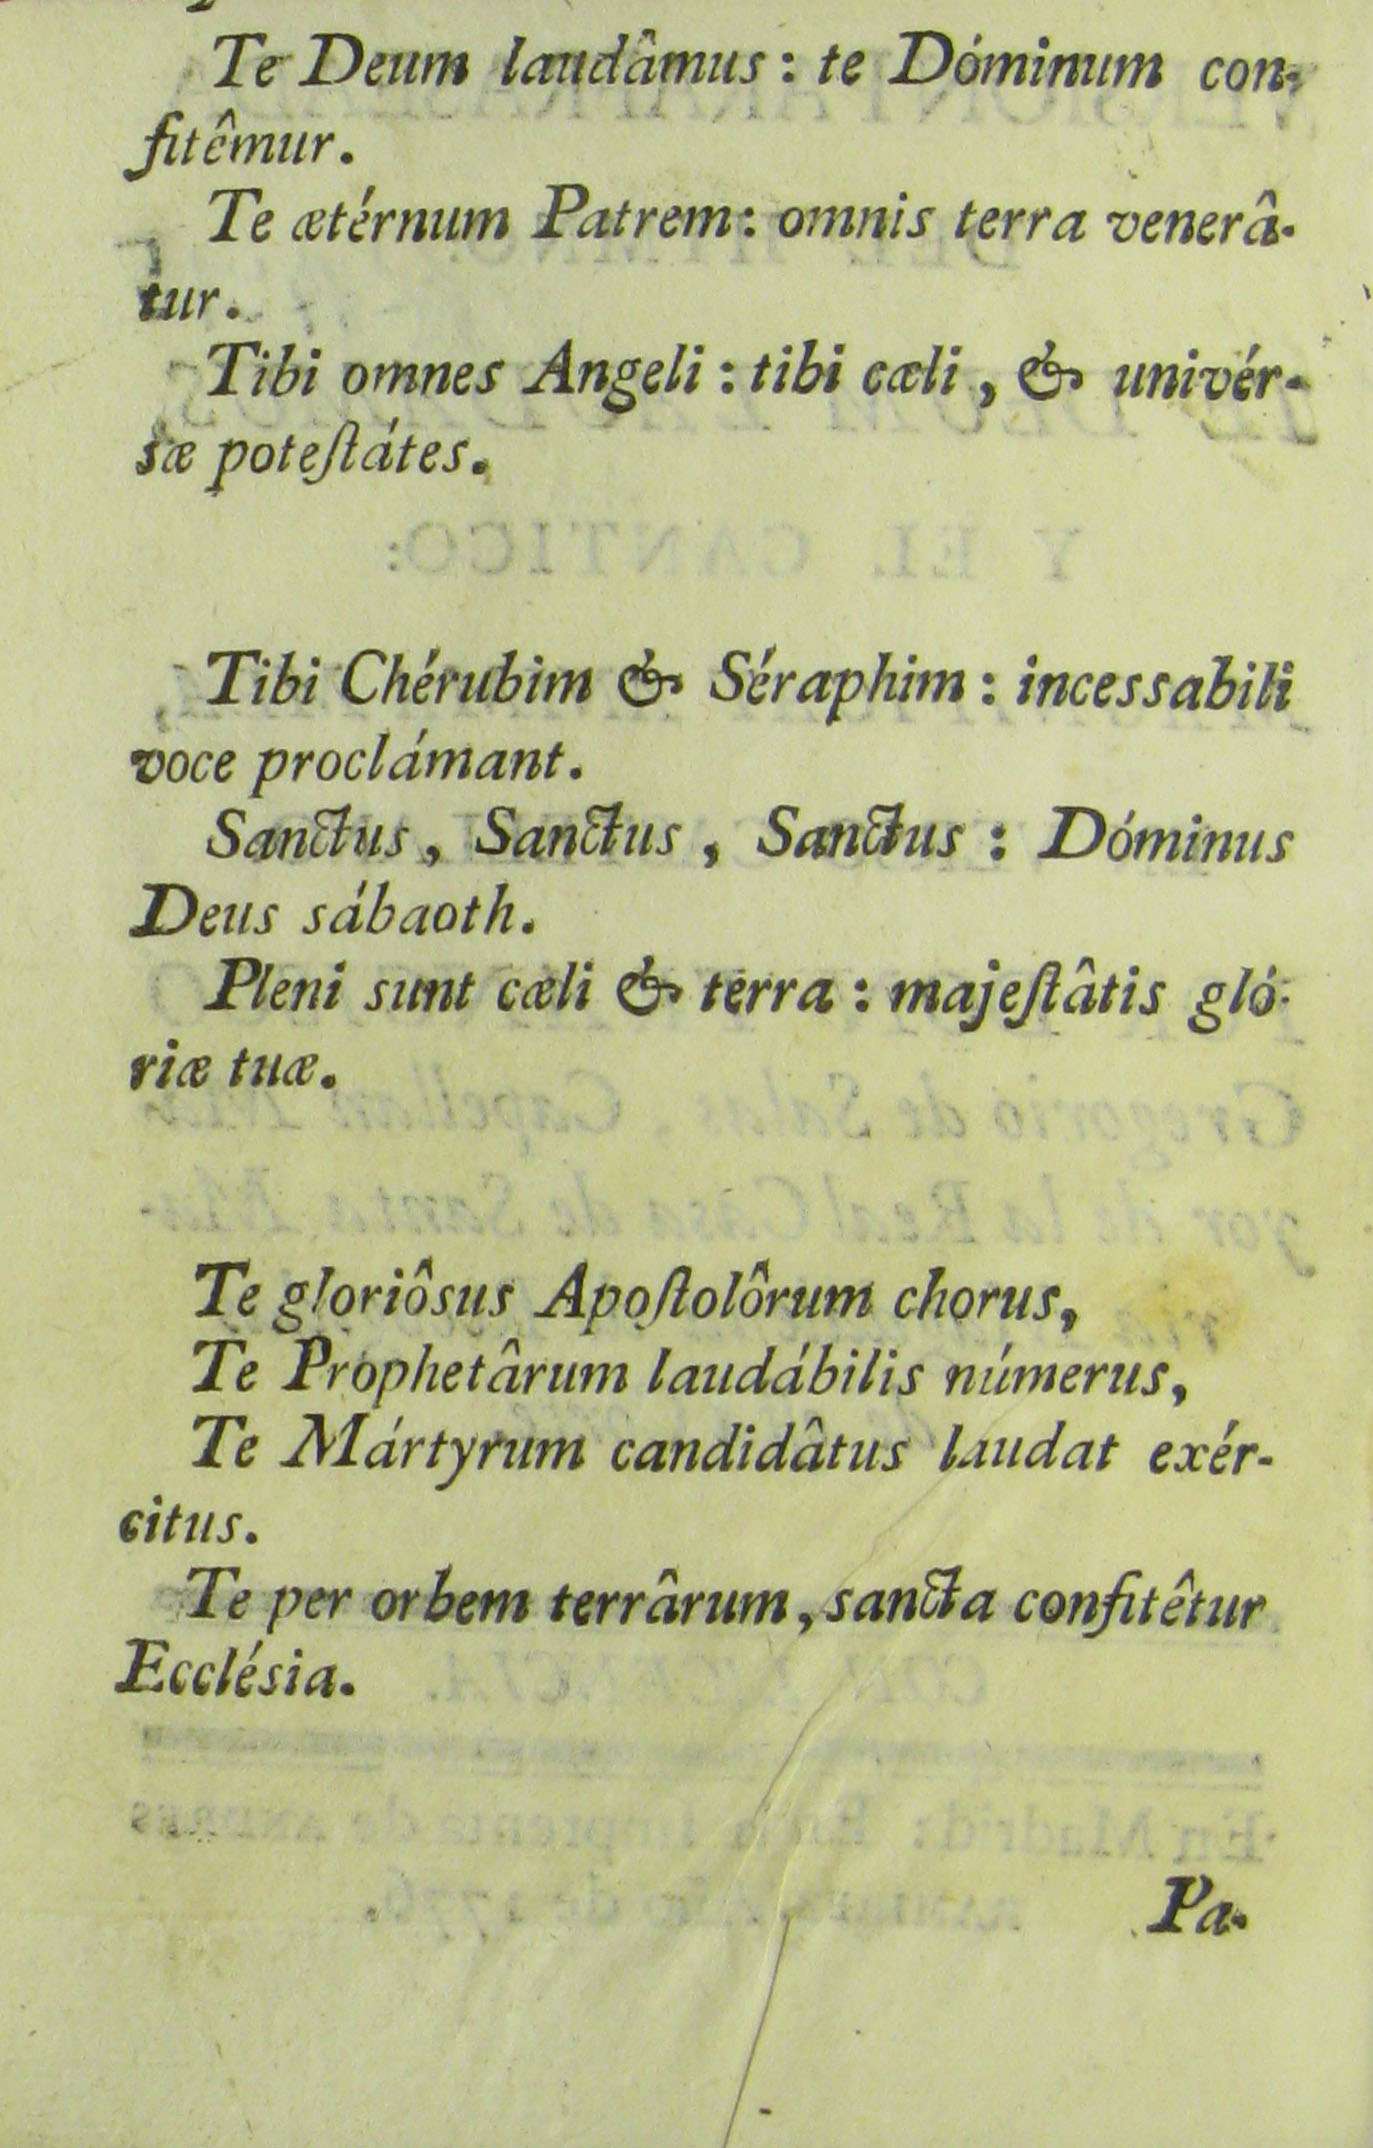 Te Deum laudâmus : te Dóminum con-
fitêmur.
Te ætérnum Patrem : omnis terra venerâ-
tur.
Tibi omnes Angeli : tibi cæli , & univér-
sæ poteſtátes.
Tibi Chérubim & Séraphim : incessabili
voce proclámant.
Sanctus , Sanctus , Sanctus : Dóminus
Deus sábaoth.
Pleni sunt cæli & terra : majeſtâtis gló-
riæ tuæ.
Te gloriôsus Apoſtolôrum chorus,
Te Prophetârum laudábilis númerus,
Te Mártyrum candidâtus laudat exér-
citus.
Te per orbem terrârum, sancta confitêtur
Ecclésia.
Pa-